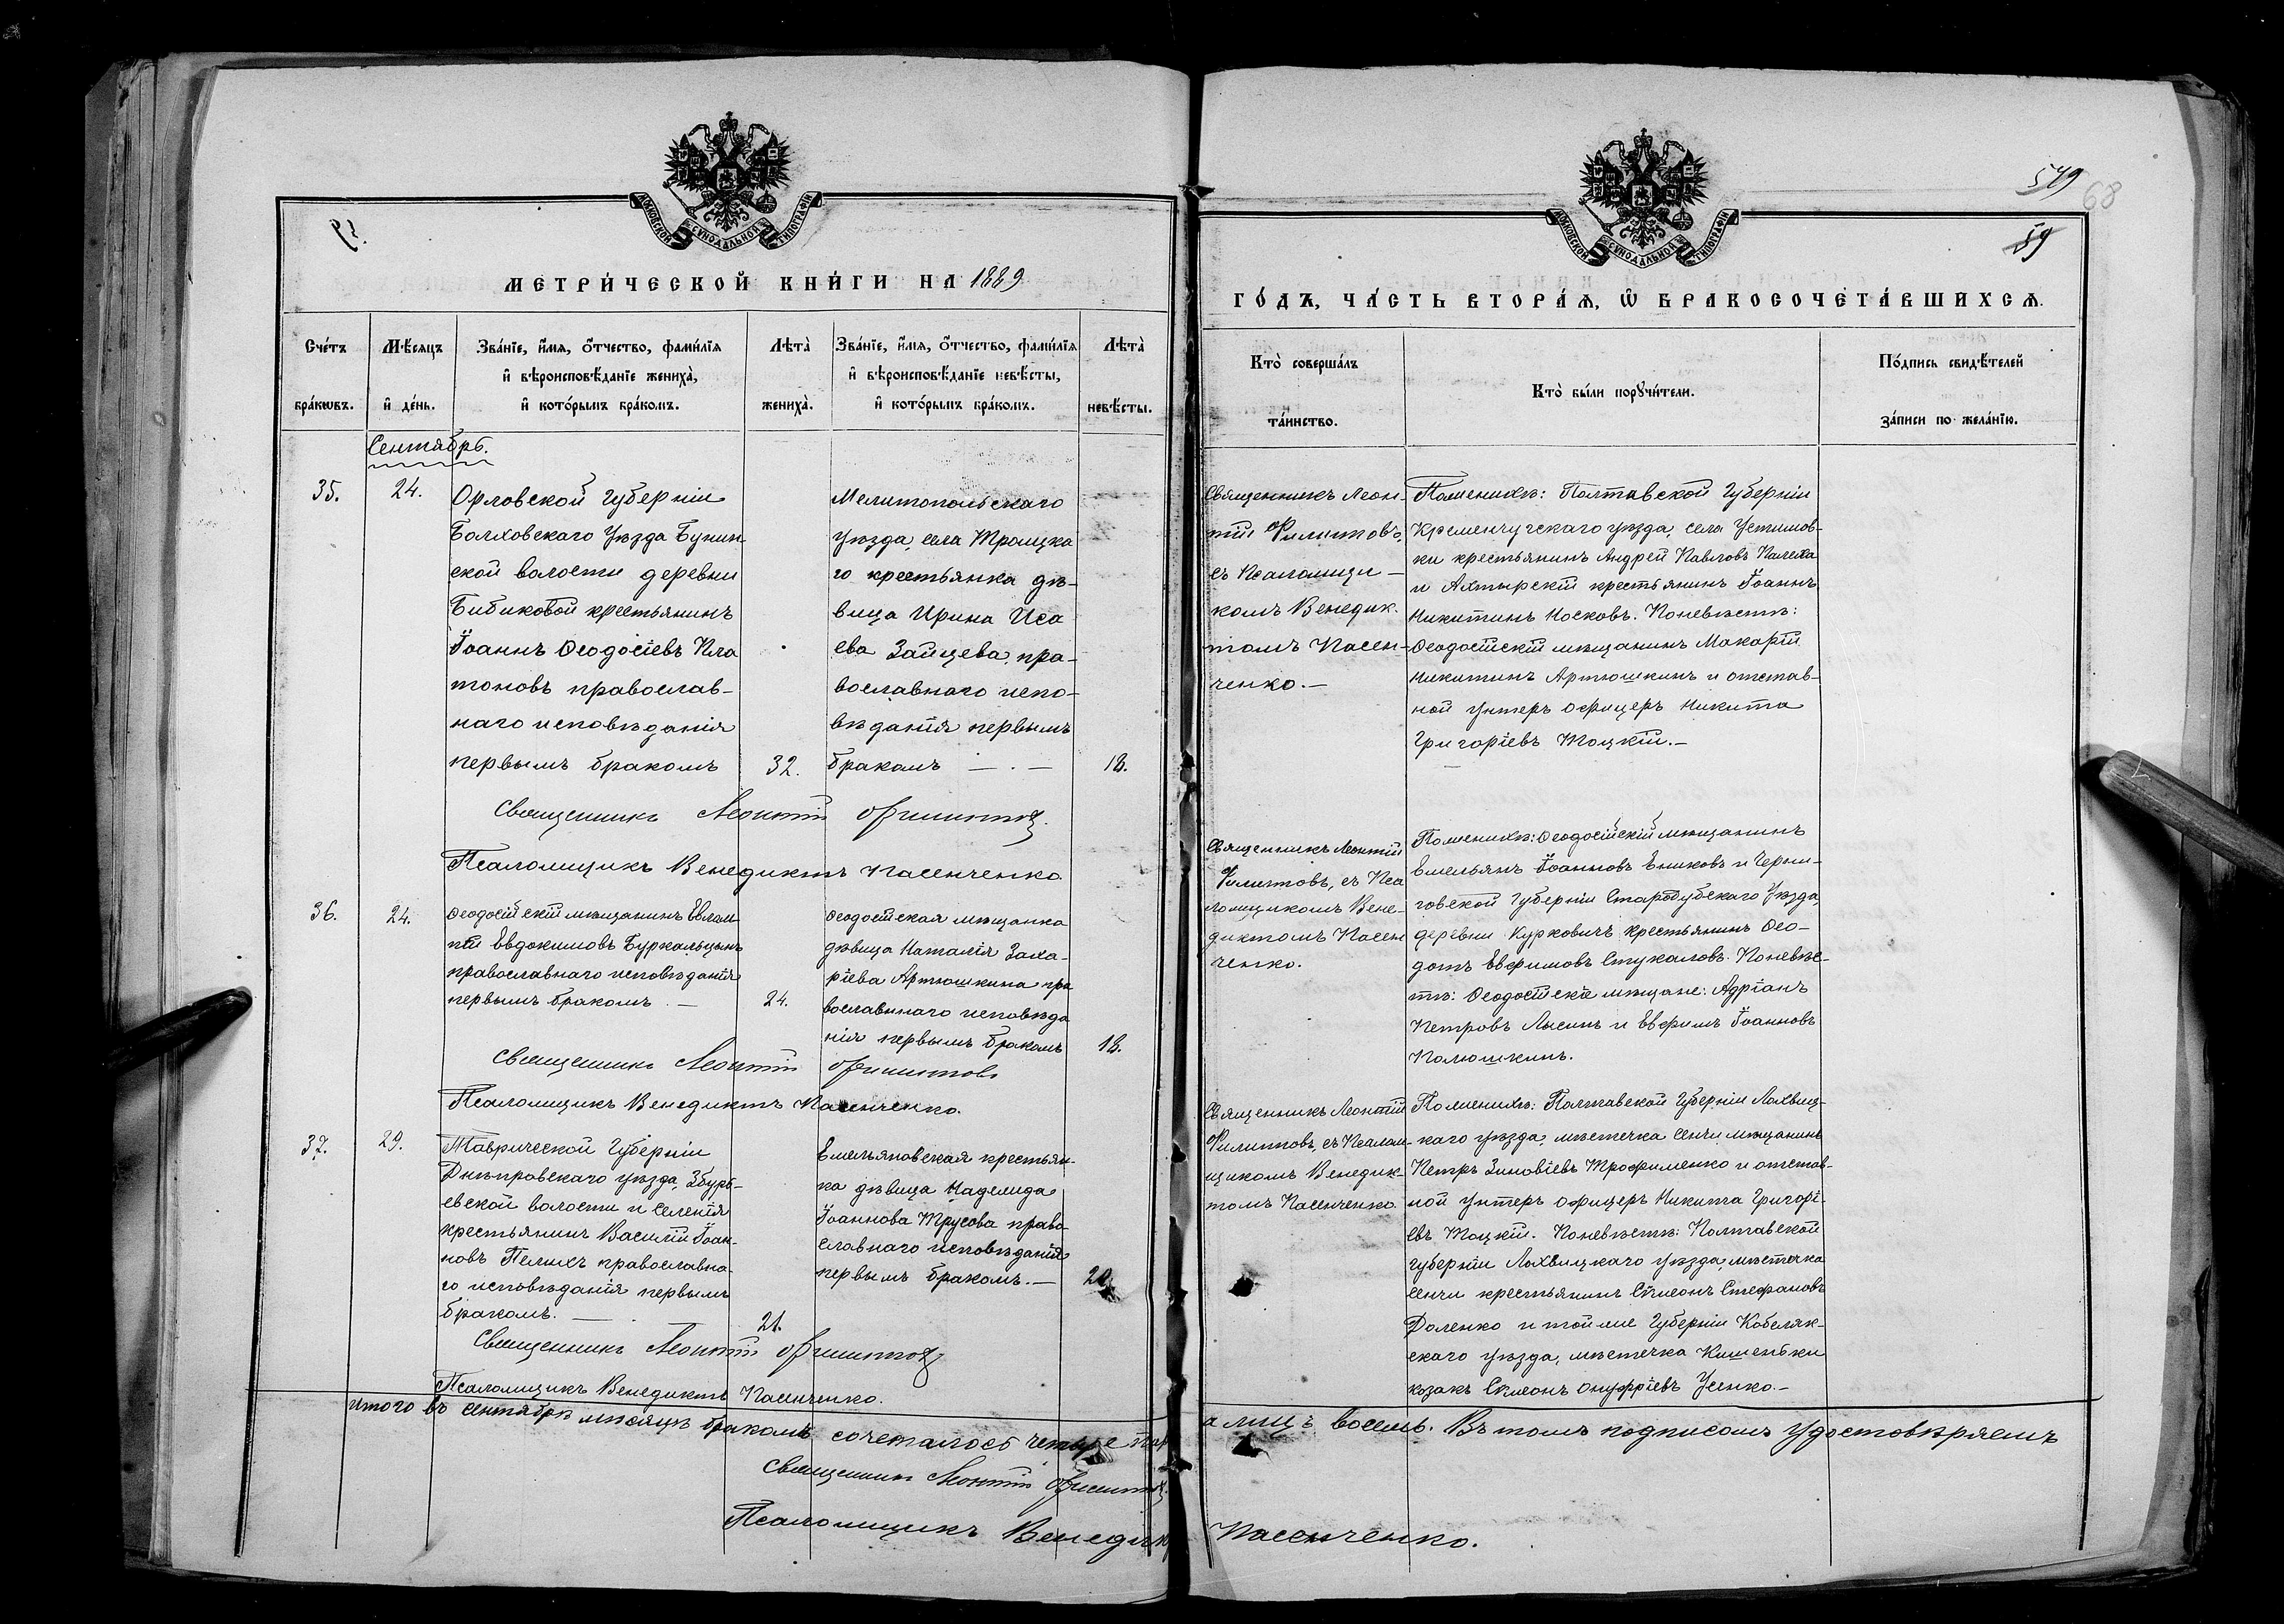 МОСКОВСКОЙ СѴНОДАЛЬНОЙ ТИПОГРАФІИ
МЕТРИ́ЧЕСКОЙ КНИ́ГИ НА 1889
Сче́тъ бра́кѡвъ.
Мѣ́сяцъ и҆ де́нь.
Зва́нїе, и҆́мя, ѻ҆́тчество, фами́лїя
и҆ вѣроисповѣ́данїе жениха̀,
и҆ кото́рымъ бра́комъ.
Лѣта̀ жениха̀.
Зва́нїе, и҆́мя, ѻ҆́тчество, фами́лїя
и҆ вѣроисповѣ́данїе невѣ́сты,
и҆ кото́рымъ бра́комъ.
Лѣта̀ невѣ́сты.
Сентябрь.
35.
24.
Орловской Губерніи
Болховскаго Уѣзда Бунин
ской волости деревни
Бибиковой крестьянинъ
Іоаннъ Ѳеодосіевъ Пла
тоновъ православ-
наго исповѣданія
первымъ бракомъ
32.
Мелитопольскаго
уѣзда, села Троицка
го крестьянка дѣ-
вица Ирина Иса
ева Зайцева, пра-
вославнаго испо-
вѣданія первымъ
бракомъ —.—
18.
Священникъ Леонтій Филипповъ.
Псаломщикъ Венедиктъ Пасенченко
36.
24.
Ѳеодосійскій мѣщанинъ Евлам
пій Евдокимовъ Буркальцынъ
православнаго исповѣданія
первымъ бракомъ. —
24.
Ѳеодосійская мѣщанка
дѣвица Наталія Заха-
ріева Артюшкина пра
вославнаго исповѣда
нія первымъ бракомъ
18.
Священникъ Леонтій Филипповъ
Псаломщикъ Венедиктъ Пасенченко.
37.
29.
Таврической Губерніи
Днѣпровскаго уѣзда, Збурь-
евской волости и селенія
крестьянинъ Василій Іоан-
новъ Пелихъ православна-
го исповѣданія первымъ
бракомъ. —
21.
Емельяновская крестьян-
ка дѣвица Надежда
Іоаннова Трусова право-
славнаго исповѣданія
первымъ бракомъ. —
20
Священникъ Леонтій Филипповъ
Псаломщикъ Венедиктъ Пасенченко.
Итого въ сентябрѣ мѣсяцѣ бракомъ сочеталось четыре пар
Священникъ Леонтій Филипповъ.
Псаломщикъ Венедик
549
68
59
МОСКОВСКОЙ СѴНОДАЛЬНОЙ ТИПОГРАФІИ
ГО́ДЪ, ЧА́СТЬ ВТОРА́Я, Ѡ҆ БРАКОСОЧЕТА́ВШИХСЯ.
Кто̀ соверша́лъ та́инство.
Кто̀ бы́ли порꙋчи́тели.
По́дпись свидѣ́телей за́писи по жела́нїю.
Священникъ Леон-
тій Филипповъ,
съ Псаломщи-
комъ Венедик-
томъ Пасен-
ченко.—
Поженихѣ: Полтавской Губерніи
Кременчугскаго уѣзда, села Устимов-
ки крестьянинъ Андрей Павловъ
и Ахтырскій крестьянинъ Іоаннъ
Никитинъ Носковъ. Поневѣстѣ:
Ѳеодосійскій мѣщанинъ Макарій
Никитинъ Артюшкинъ и отстав-
ной унтеръ офицеръ Никита
Григоріевъ Тоцкій.—
Священникъ Леонтій
Филипповъ, съ Пса
ломщикомъ Вене-
диктомъ Пасен
ченко.
Поженихѣ: Ѳеодосійскій мѣщанинъ
Емельянъ Іоанновъ Ениковъ и Черни-
говской Губерніи Стародубскаго Уѣзда,
деревни Курковичъ крестьянинъ Ѳео-
дотъ Евфимовъ Стукаловъ. Поневѣс-
тѣ: Ѳеодосійскіе мѣщане: Адріанъ
Петровъ Лысинъ и Евфимъ Іоанновъ
Полюшкинъ.
Священникъ Леонтій
Филипповъ, съ Псалом-
щикомъ Венедик-
томъ Пасенченко.
Поженихѣ: Полтавской Губерніи Лохвиц-
каго уѣзда, мѣстечка Сенчи мѣщанинъ
Петръ Зиновіевъ Трофименко и отстав-
ной унтеръ офицеръ Никита Григорі-
евъ Тоцкій. Поневѣстѣ: Полтавской
губерніи Лохвицкаго уѣзда, мѣстечка
Сенчи крестьянинъ Сѵмеонъ Стефановъ
Доленко и тойже Губерніи Кобеляк-
скаго уѣзда, мѣстечка Кишеньки
козакъ Сѵмеонъ Онуфріевъ Усенко.—
а лицъ восемь. Въ томъ подписомъ удостовѣряемъ
Пасенченко.